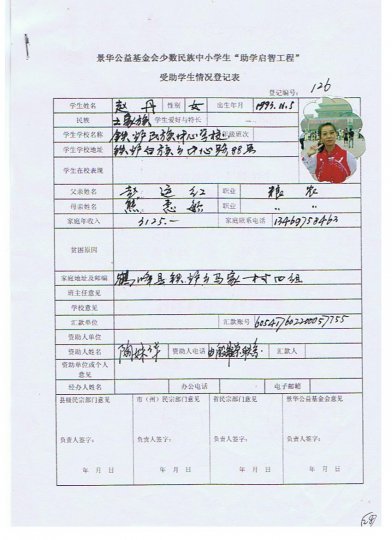 景华公益基金会少数民族中小学生“助学启智工程”
受助学生情况登记表
登记编号： 126
学生姓名 赵丹 性别 女 出生年月 1993.11.5
民族 土家族 学生爱好与特长
学生学校名称 铁炉民族中心学校 年级班次
学生学校地址 铁炉白族乡中心路88号
学生在校表现
父亲姓名 职业 务农
母亲姓名 熊 职业 〃 〃
家庭年收入 3125.— 家庭联系电话 13469758463
贫困原因
家庭地址及邮编 鹤峰县铁炉乡马家村四组
班主任意见
学校意见
汇款单位 汇款账号
资助人单位
资助人姓名 陶 资助人电话 汇款人
资助单位或个人意见
经办人姓名 办公电话 电子邮箱
县级民宗部门意见 市（州）民宗部门意见 省民宗部门意见 景华公益基金会意见
负责人签字： 负责人签字： 负责人签字： 负责人签字：
年 月 日 年 月 日 年 月 日 年 月 日